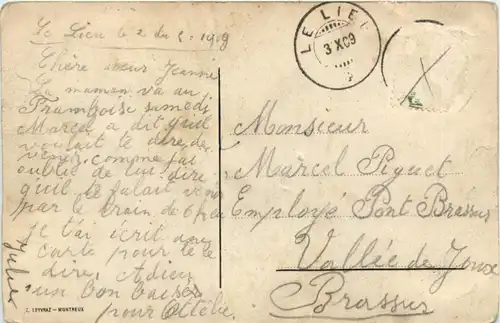 Le Lieu le 2 du 1909
LE LIEU
3 X 09
Chère sœur Jeanne
La maman va au
Framboise samedi
Marcel a dit qu'il
voulait le dire de
venir comme j'ai
oublié de lui dire
qu'il te falait venir
par le train de 6 h
je t'ai écrit une
carte pour te le
dire, Adieu
un bon baiser
pour Ottélie.
Julien
Monsieur
Marcel Piguet
Employé Pont Brassus
Vallée de Joux
Brassus
Z. LEYVRAZ — MONTREUX